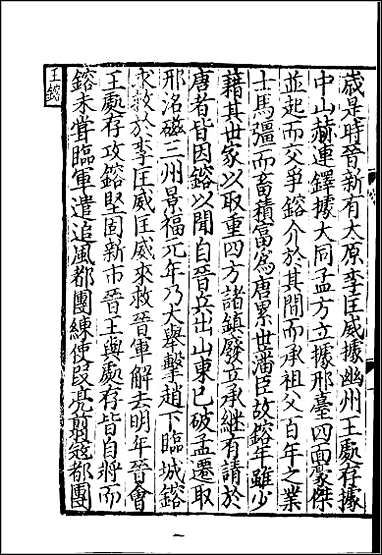 歲是時晉新有太原李匡威據幽州王處存據
中山赫連鐸據大同孟方立據邢臺四面豪傑
並起而交爭鎔介於其間而承祖父百年之業
士馬彊而畜積富爲唐累世藩臣故鎔年雖少
藉其世家以取重四方諸鎮廢立承繼有請於
唐者皆因鎔以聞自晉兵出山東已破孟遷取
邢洺磁三州景福元年乃大舉擊趙下臨城鎔
求救於李匡威匡威來救晉軍解去明年晉會
王處存攻鎔堅固新市晉王與處存皆自將而
鎔未甞臨軍遣追風都團練使段亮翦寇都團
王鎔